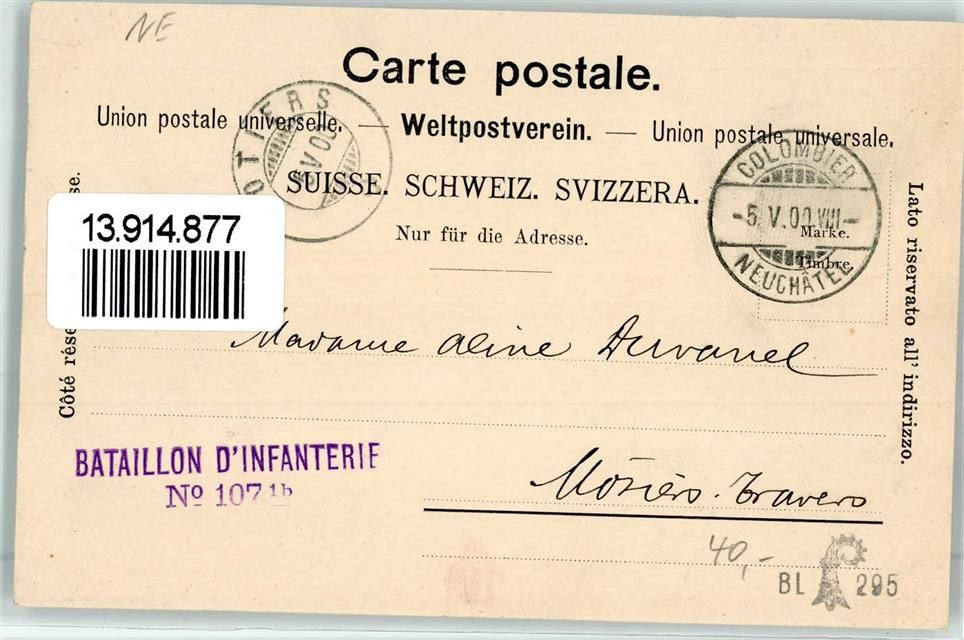 NE
Carte postale.
Union postale universelle. — Weltpostverein. — Union postale universale.
SUISSE. SCHWEIZ. SVIZZERA.
Nur für die Adresse.
OTIERS
V 00
COLOMBIER
-5.V.00.VIII-
NEUCHÂTEL
Marke.
Timbre.
13.914.877
Côté rése
se.
Lato riservato all' indirizzo.
Madame Aline Duvanel
Môtiers. Travers
BATAILLON D'INFANTERIE
No 107 1b
40,-
BL 295